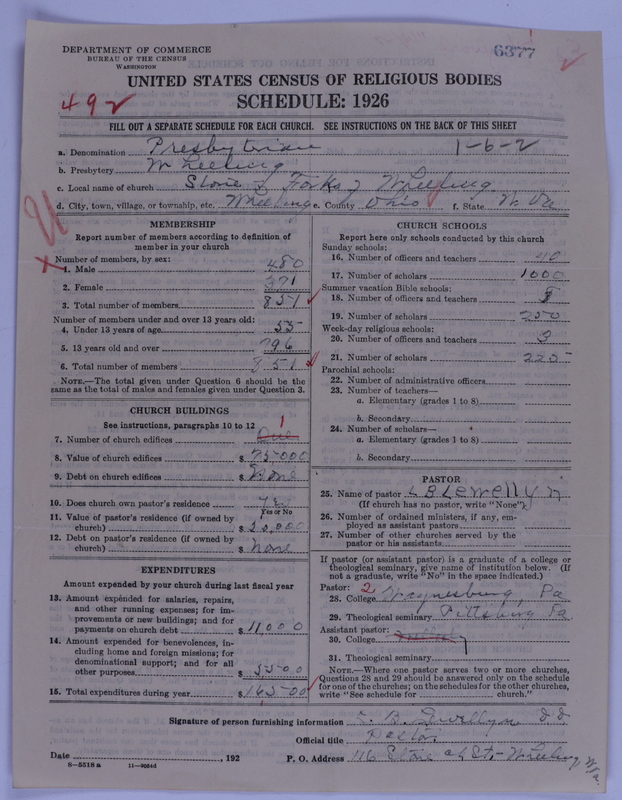 DEPARTMENT OF COMMERCE
BUREAU OF THE CENSUS
WASHINGTON
6377
UNITED STATES CENSUS OF RELIGIOUS BODIES
SCHEDULE: 1926
492
FILL OUT A SEPARATE SCHEDULE FOR EACH CHURCH. SEE INSTRUCTIONS ON THE BACK OF THIS SHEET
a. Denomination Presbyterian 1-6-2
b. Presbytery Wheeling
c. Local name of church Stone & Forks of Wheeling
d. City, town, village, or township, etc. Wheeling e. County Ohio f. State W Va
MEMBERSHIP
Report number of members according to definition of
member in your church
Number of members, by sex:
1. Male 480
2. Female 371
3. Total number of members 851
Number of members under and over 13 years old:
4. Under 13 years of age 55
5. 13 years old and over 796
6. Total number of members 851
NOTE.—The total given under Question 6 should be
same as the total of males and females given under Question 3.
CHURCH BUILDINGS
See instructions, paragraphs 10 to 12
1
7. Number of church edifices One
8. Value of church edifices $ 75000
9. Debt on church edifices $ None
10. Does church own pastor's residence Yes
Yes or No
11. Value of pastor's residence (if owned by
church) $ 20,000
12. Debt on pastor's residence (if owned by
church) $ None
EXPENDITURES
Amount expended by your church during last fiscal year
13. Amount expended for salaries, repairs,
and other running expenses; for im-
provements or new buildings; and for
payments on church debt $ 11,000
14. Amount expended for benevolences, in-
cluding home and foreign missions; for
denominational support; and for all
other purposes $ 5500
15. Total expenditures during year $ 16500
CHURCH SCHOOLS
Report here only schools conducted by this church
Sunday schools:
16. Number of officers and teachers 40
17. Number of scholars 1000
Summer vacation Bible schools:
18. Number of officers and teachers
19. Number of scholars 250
Week-day religious schools:
20. Number of officers and teachers 3
21. Number of scholars 225
Parochial schools:
22. Number of administrative officers
23. Number of teachers—
a. Elementary (grades 1 to 8)
b. Secondary
24. Number of scholars—
a. Elementary (grades 1 to 8)
b. Secondary
PASTOR
25. Name of pastor L B Lewellyn
(If church has no pastor, write "None")
26. Number of ordained ministers, if any, em-
ployed as assistant pastors
27. Number of other churches served by the
pastor or his assistants
If pastor (or assistant pastor) is a graduate of a college or
theological seminary, give name of institution below. (If
not a graduate, write "No" in the space indicated.)
Pastor: 2
28. College Waynesburg, Pa
29. Theological seminary Pittsburg Pa
Assistant pastor:
30. College
31. Theological seminary
NOTE.—Where one pastor serves two or more churches,
Questions 28 and 29 should be answered only on the schedule
for one of the churches; on the schedules for the other churches,
write "See schedule for church."
Signature of person furnishing information B. Lewellyn D.D.
Official title Pastor
Date , 192
P. O. Address 116 St- Wheeling W Va.
8—5518 a 11—9054d